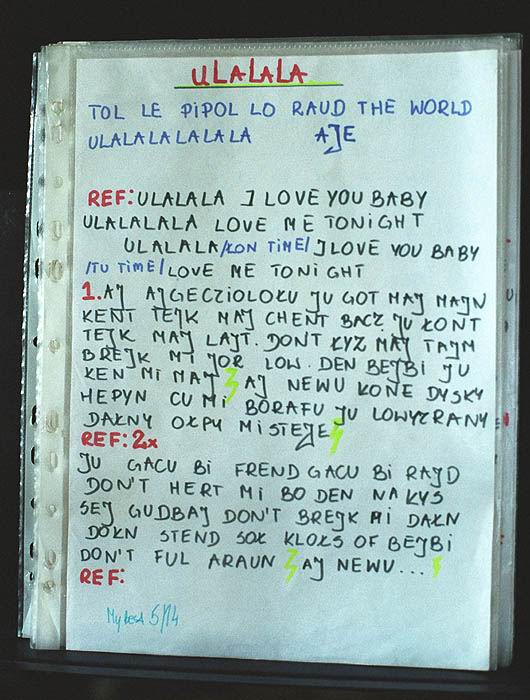 ULALALA
TOL LE PIPOL LO RAUD THE WORLD
ULALALALALALA AJE
REF: ULALALA J LOVE YOU BABY
ULALALALA LOVE ME TONIGHT
ULALALA /ŁON TIME/ J LOVE YOU BABY
/TU TIME/ LOVE ME TONIGHT
1. AJ AJGECZIOLOKU JU GOT MAJ MAJN
KENT TEJK MAJ CHENT BACZ JU ŁONT
TEJK MAJ LAJT. DONT ŁYZ MAJ TAJM
BREJK MI JOR LOW. DEN BEJBI JU
KEN MI MAJ AJ NEWU KONE DYSKY
HEPYN CU MI BORAFU JU LOWYZRANY
DAŁNY OŁPY MISTEJE
REF: 2x
JU GACU BI FREND GACU BI RAJD
DON'T HERT MI BO DEN NA KYS
SEJ GUDBAJ DON'T BREJK MI DAŁN
DOŁN STEND SOŁ KLOŁS OF BEJBI
DON'T FUL ARAUN AJ NEWU...
REF:
My best 5/14